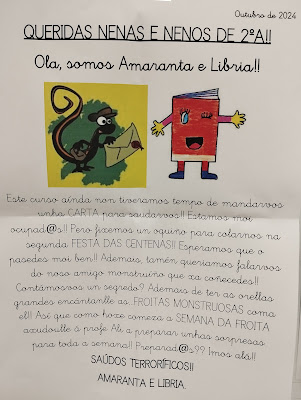 Outubro de 2024
QUERIDAS NENAS E NENOS DE 2ºA!!
Ola, somos Amaranta e Libria!!
Este curso aínda non tiveramos tempo de mandarvos
unha CARTA para saudarvos!! Estamos moi
ocupad@s!! Pero fixemos un oquiño para colarnos na
segunda FESTA DAS CENTENAS!! Esperamos que o
pasedes moi ben!! Ademais, tamén queriamos falarvos
do noso amigo monstruíño que xa coñecedes!!
Contámosvos un segredo? Ademais de ter as orellas
grandes encántanlle as FROITAS MONSTRUOSAS coma
el!! Así que como hoxe comeza a SEMANA DA FROITA
axudoulle á profe Ali, a preparar unhas sorpresas
para toda a semana!! Preparad@s?? Imos alá!!
SAÚDOS TERRORÍFICOS!!
AMARANTA E LIBRIA.